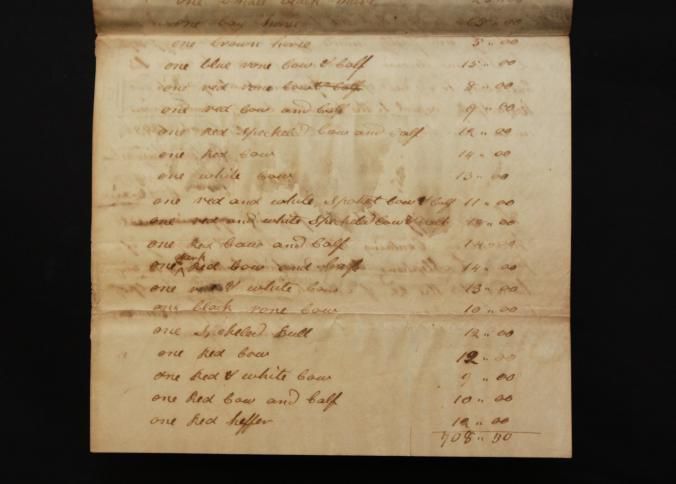 one small black mare 25 " 00
one bay horse 65 " 00
one brown horse 5 " 00
one blue rone Cow & Calf 15 " 00
one red rone Cow & Calf 8 " 00
one red Cow and Calf 9 " 00
one Red Speckeled Cow and Calf 12 " 00
one Red Cow 14 " 00
one white Cow 13 " 00
one red and white Spotted Cow & Calf 11 " 00
one red and white Speckeled Cow & Calf 00
one Red Cow and Calf 14 " 00
one dark Red Cow and Calf 14 " 00
one red & white Cow 13 " 00
one black rone Cow 10 " 00
one Speckeled Bull 12 " 00
one Red Cow 12 " 00
one Red & white Cow 9 " 00
one Red Cow and Calf 10 " 00
one Red heffer 12 " 00
908 " 50